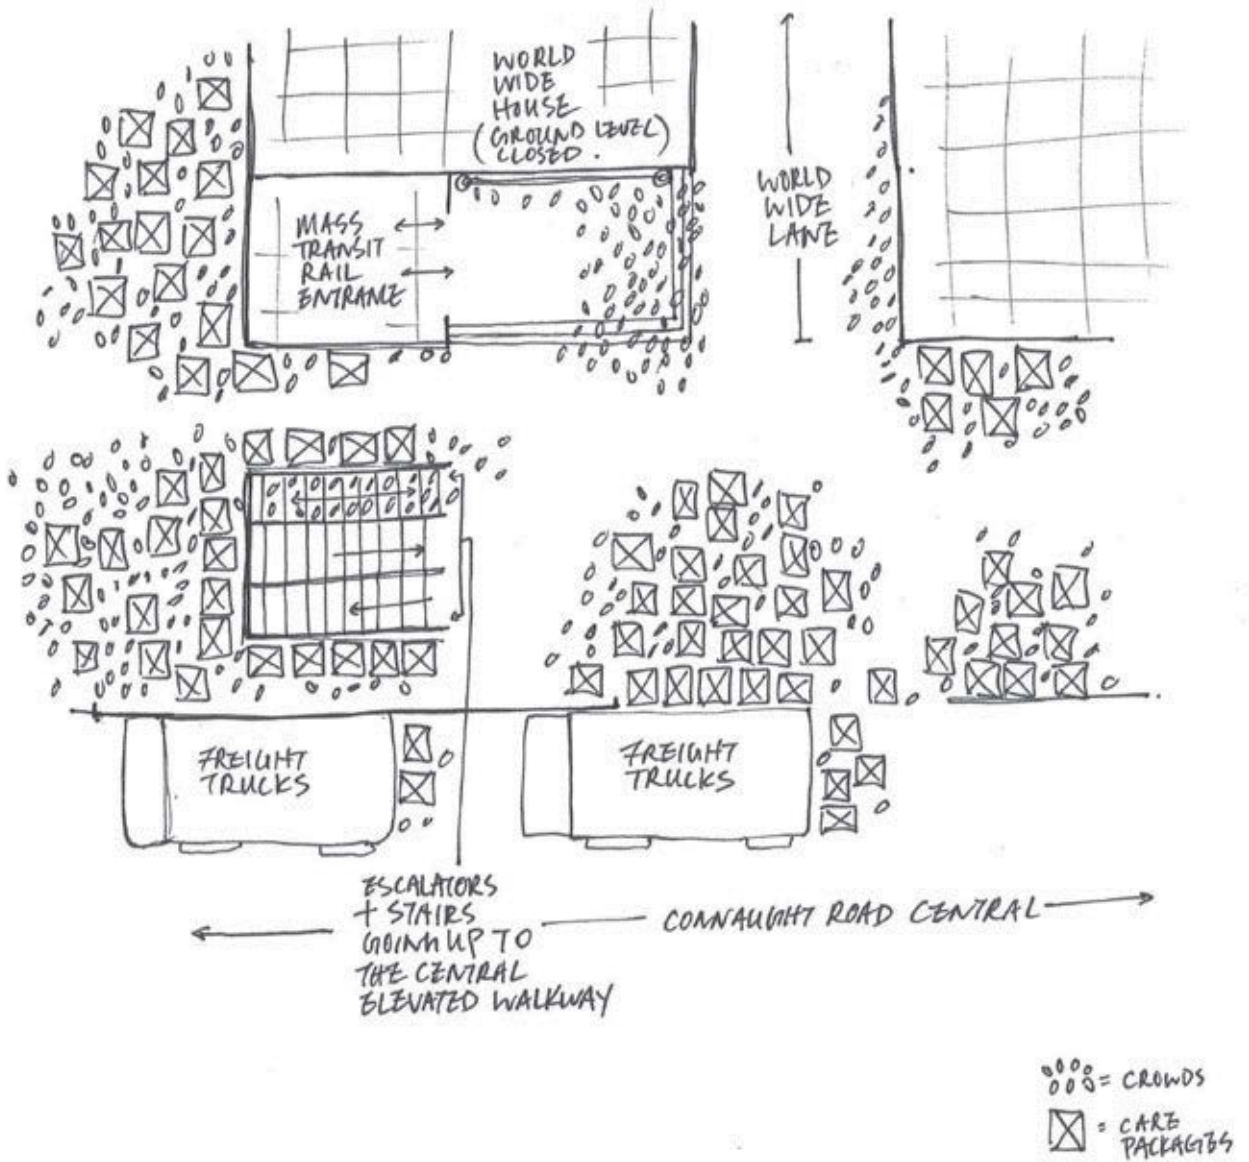 WORLD
WIDE
HOUSE
(GROUND LEVEL)
CLOSED.
MASS
TRANSIT
RAIL
ENTRANCE
WORLD
WIDE
LANE
FREIGHT
TRUCKS
FREIGHT
TRUCKS
ESCALATORS
+ STAIRS
GOING UP TO
THE CENTRAL
ELEVATED WALKWAY
CONNAUGHT ROAD CENTRAL
= CROWDS
= CARE
PACKAGES